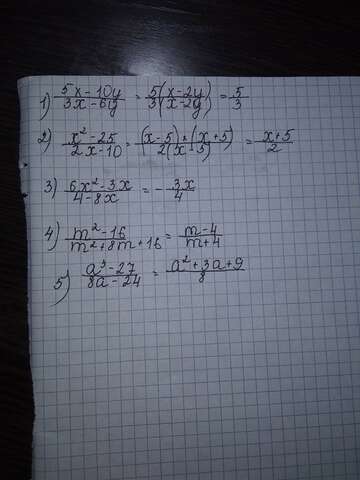 1) (5x-10y)/(3x-6y) = 5(x-2y)/3(x-2y) = 5/3
2) (x²-25)/(2x-10) = (x-5)*(x+5)/2(x-5) = (x+5)/2
3) (6x²-3x)/(4-8x) = -3x/4
4) (m²-16)/(m²+8m+16) = (m-4)/(m+4)
5) (a³-27)/(8a-24) = (a²+3a+9)/8